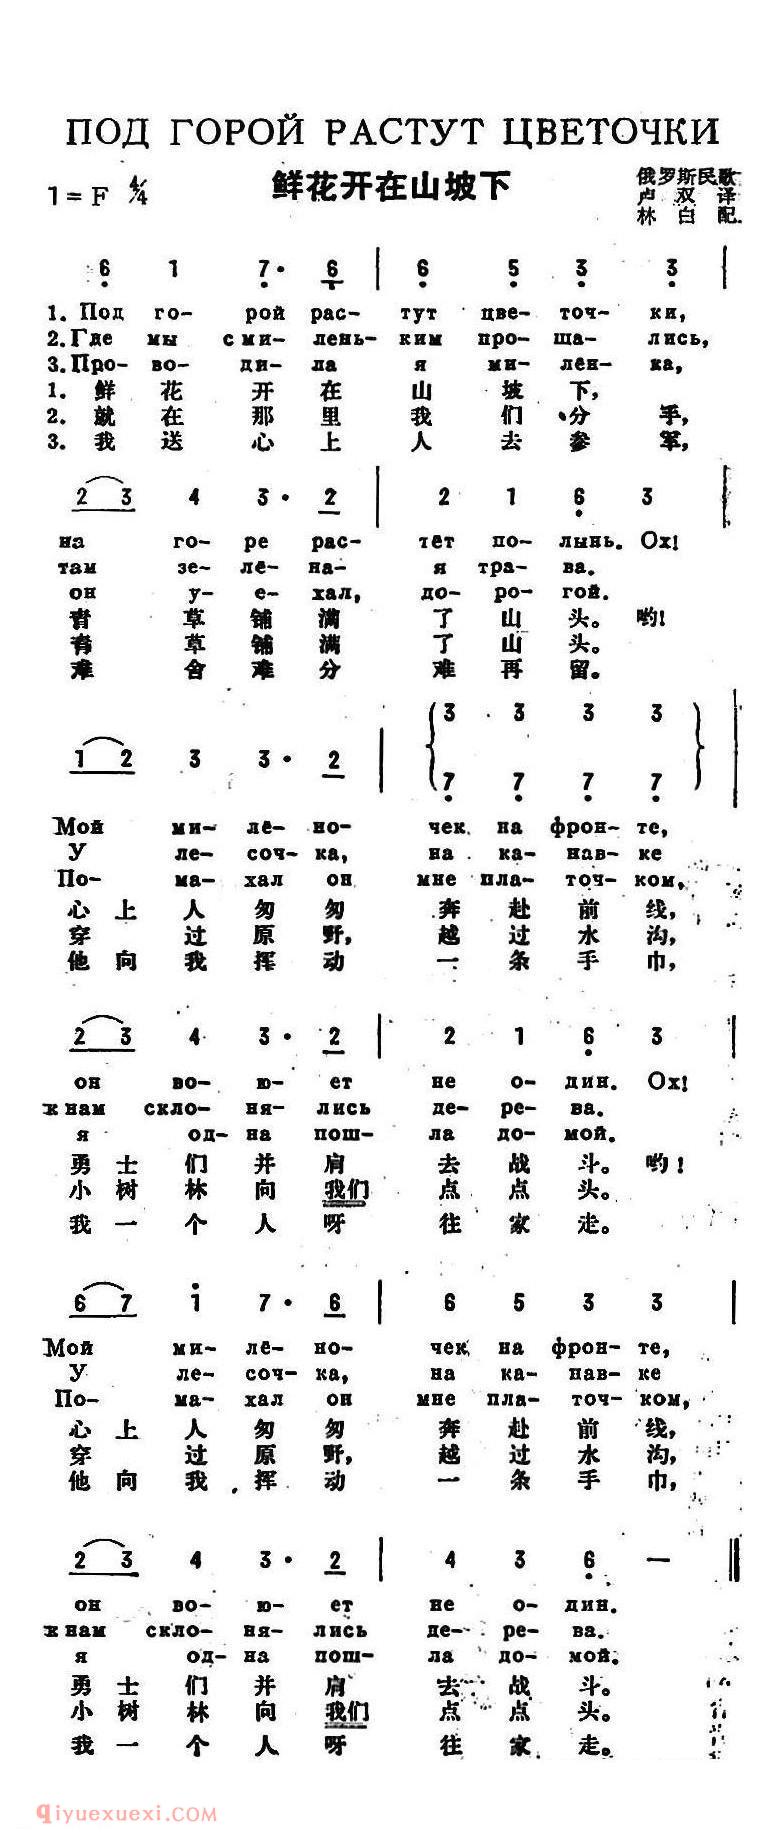 ПОД ГОРОЙ РАСТУТ ЦВЕТОЧКИ
鲜花开在山坡下
1=F 4/4
俄罗斯民歌
卢双译
林白配
6 1 7· 6 | 6 5 3 3 |
1. Под го- рой рас- тут цве- точ- ки,
2. Где мы с ми- лень- ким про- ща- лись,
3. Про- во- ди- ла я ми- лен- ка,
1. 鲜花开在山坡下,
2. 就在那里我们分手,
3. 我送心上人去参军,
2 3 4 3· 2 | 2 1 6 3
на го- ре рас- тёт по- лынь. Ох!
там зе- лё- на- я тра- ва.
он у- е- хал, до- ро- гой.
青草铺满了山头。哟!
青草铺满了山头。
难舍难分难再留。
1 2 3 3· 2 | { 3 3 3 3 }
7 7 7 7
Мой ми- лё- но- чек на фрон- те,
У ле- соч- ка, на ка- нав- ке
По- ма- хал он мне пла- точ- ком,
心上人匆匆奔赴前线,
穿过原野,越过水沟,
他向我挥动一条手巾,
2 3 4 3· 2 | 2 1 6 3 |
он во- ю- ет не о- дин. Ох!
к нам скло- ня- лись де- ре- ва.
я од- на пош- ла до- мой.
勇士们并肩去战斗。哟!
小树林向我们点点头。
我一个人呀往家走。
6 7 1 7· 6 | 6 5 3 3 |
Мой ми- лё- но- чек на фрон- те,
У ле- соч- ка, на ка- нав- ке
По- ма- хал он мне пла- точ- ком,
心上人匆匆奔赴前线,
穿过原野,越过水沟,
他向我挥动一条手巾,
2 3 4 3· 2 | 4 3 6 — ‖
он во- ю- ет не о- дин.
к нам скло- ня- лись де- ре- ва.
я од- на пош- ла до- мой.
勇士们并肩去战斗。
小树林向我们点点头。
我一个人呀往家走。
qiyuexuexi.COM